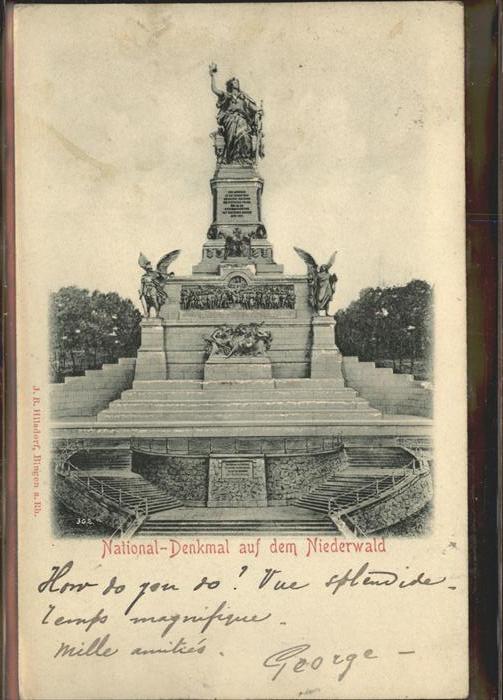 J. R. Hilsdorf, Bingen a. Rh.
National-Denkmal auf dem Niederwald
How do you do? Vue splendide -
temps magnifique -
Mille amitiés.
George -